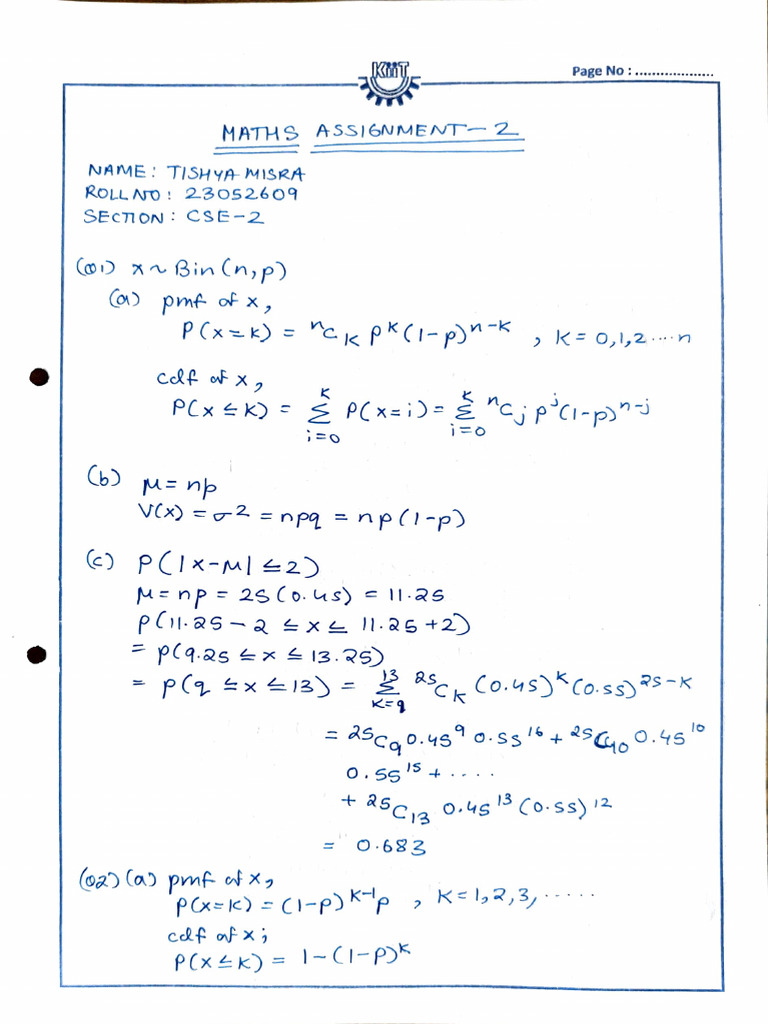 KiiT
Page No : ..................
MATHS ASSIGNMENT - 2
NAME: TISHYA MISRA
ROLL NO: 23052609
SECTION: CSE-2
(Q1) x ~ Bin(n,p)
(a) pmf of x,
P(x=k) = ⁿC_k p^k (1-p)^{n-k} , k = 0,1,2 ..... n
cdf of x,
P(x ≤ k) = Σ_{i=0}^{k} P(x=i) = Σ_{i=0}^{k} ⁿC_j p^j (1-p)^{n-j}
(b) μ = np
V(x) = σ² = npq = np(1-p)
(c) P(|x-μ| ≤ 2)
μ = np = 25(0.45) = 11.25
P(11.25 - 2 ≤ x ≤ 11.25 + 2)
= P(9.25 ≤ x ≤ 13.25)
= P(9 ≤ x ≤ 13) = Σ_{k=9}^{13} ²⁵C_k (0.45)^k (0.55)^{25-k}
= ²⁵C_9 0.45^9 0.55^16 + ²⁵C_10 0.45^10
0.55^15 + ....
+ ²⁵C_13 0.45^13 (0.55)^12
= 0.683
(Q2) (a) pmf of x,
P(x=k) = (1-p)^{k-1} p , k = 1,2,3, .....
cdf of x;
P(x ≤ k) = 1-(1-p)^k